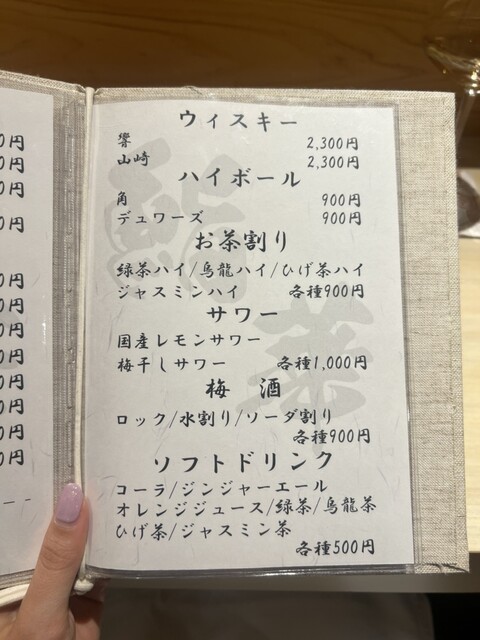 ウィスキー
響 2,300円
山崎 2,300円
ハイボール
角 900円
デュワーズ 900円
お茶割り
緑茶ハイ/烏龍ハイ/ひげ茶ハイ
ジャスミンハイ 各種900円
サワー
国産レモンサワー
梅干しサワー 各種1,000円
梅 酒
ロック/水割り/ソーダ割り
各種900円
ソフトドリンク
コーラ/ジンジャーエール
オレンジジュース/緑茶/烏龍茶
ひげ茶/ジャスミン茶
各種500円